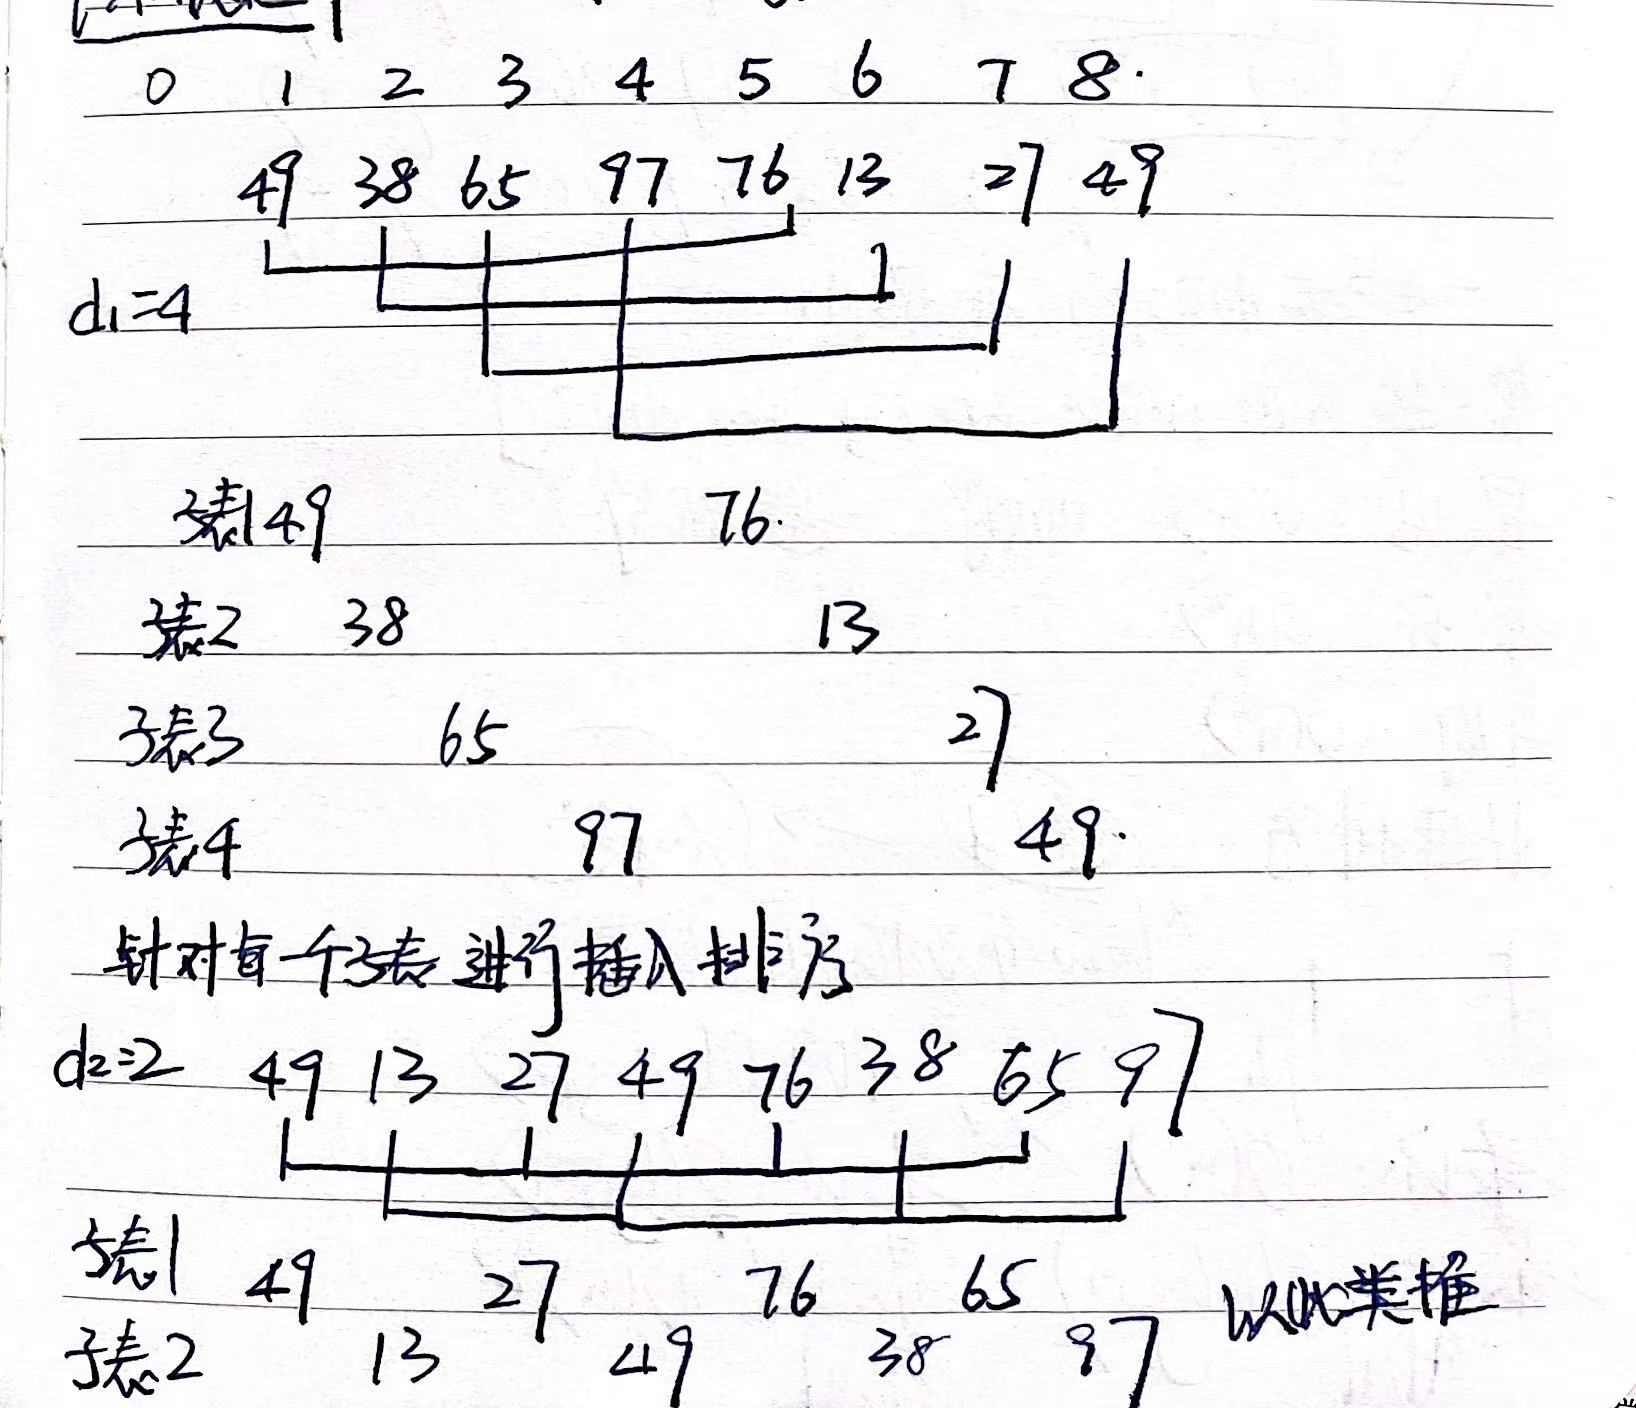 0 1 2 3 4 5 6 7 8.
49 38 65 97 76 13 27 49
d₁=4
子表1 49 76.
子表2 38 13
子表3 65 27
子表4 97 49.
针对每一个子表进行插入排序
d₂=2 49 13 27 49 76 38 65 97
子表1 49 27 76 65 以此类推
子表2 13 49 38 97